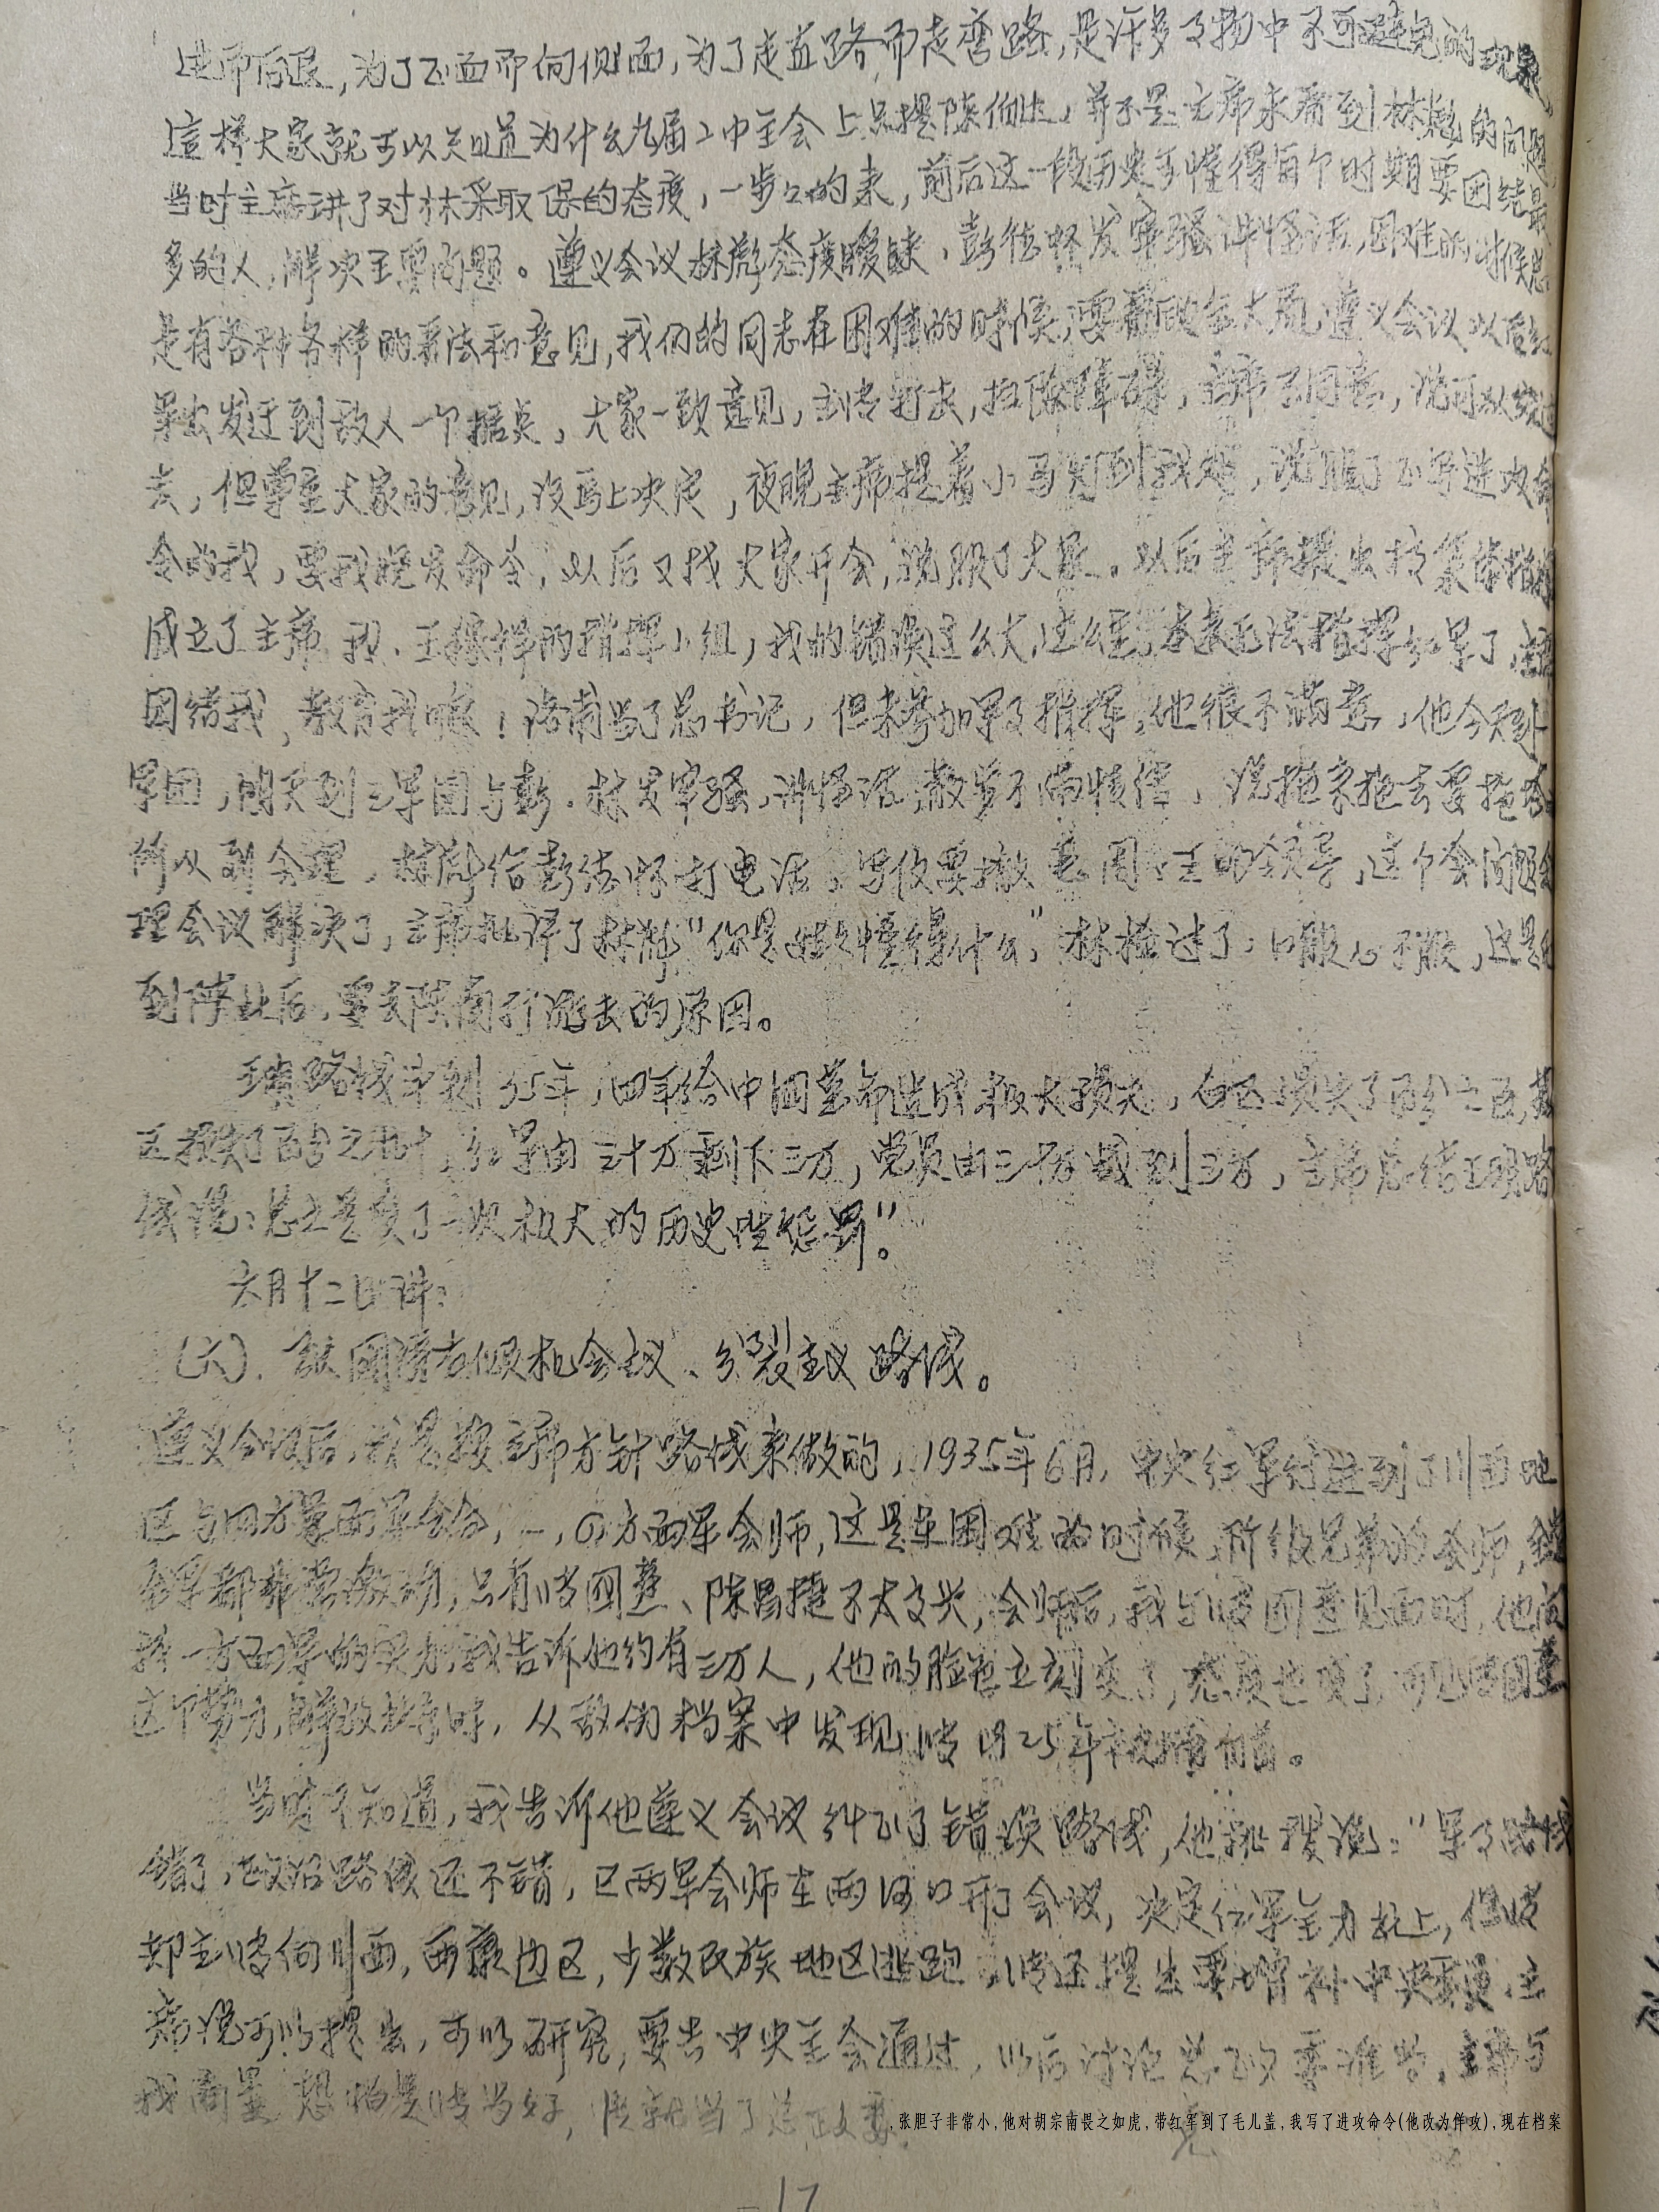 进而后退，为了正面而向侧面，为了走直路而走弯路，是许多事物中不可避免的现象，
这样大家就可以知道为什么九届二中全会上只提陈伯达，并不是主席未看到林彪的问题，
当时主席讲了对林采取保的态度，一步步的来，前后这一段历史要懂得每个时期要团结最
多的人，解决主要问题。遵义会议林彪态度暧昧，彭德怀发牢骚讲怪话，困难的时候总
是有各种各样的看法和意见，我们的同志在困难的时候，要看大局，遵义会议以后红
军出发过到敌人一个据点，大家一致意见，主张打去，扫除障碍，主席不同意，说可以绕过
去，但尊重大家的意见，没马上决定，夜晚主席提着小马灯到我处，说服了正写进攻命
令的我，要我晚发命令，以后又找大家开会，说服了大家，以后主席提出搞集体指挥
成立了主席、我、王稼祥的指挥小组，我的错误这么大，这么重，本来无法指挥红军了，主席
团结我，教育我嘛！洛甫当了总书记，但未参加军事指挥，他很不满意，他今天到一
军团，明天到三军团与彭、林发牢骚，讲怪话，散步不满情绪，说拖来拖去要拖垮
所以到会理，林彪给彭德怀打电话，写信要撤毛、周、王的领导，这个会问题会
理会议解决了，主席批评了林彪“你是娃娃懂得什么，”林检讨了，口服心不服，这是
到陕北后，要去陕南打游击的原因。
王明路线到35年，四年给中国革命造成极大损失，白区损失了百分之百，苏
区损失了百分之九十，红军由三十万剩下三万，党员由三十万减到三万，主席总结王明路
线说：总之是受了一次极大的历史性惩罚”。
六月十二日讲：
（六）．张国焘右倾机会主义、分裂主义路线。
遵义会议后，我是按主席方针路线来做的，1935年6月，中央红军经过到了川西地
区与四方面军会合，一，四方面军会师，这是在困难的时候，阶级兄弟的会师，
全军都非常激动，只有张国焘、陈昌捷不太高兴，会师后，我与张国焘见面时，他问
我一方面军的实力，我告诉他约有三万人，他的脸色立刻变了，态度也变了，可见张国焘
这个势力，解放北京时，从敌伪档案中发现张国25年被捕自首。
当时不知道，我告诉他遵义会议纠正了错误路线，他挑拨说：“军事路线
错了，政治路线还不错，已两军会师在两河口开了会议，决定红军全力北上，但张
却主张向川西，西康边区，少数民族地区逃跑，张还提出要增补中央委员，主
席说可以提出，可以研究，要告中央全会通过，以后讨论总政委谁当，主席与
我商量，想怕是张当好，张就当了总政委，
，张胆子非常小，他对胡宗南畏之如虎，带红军到了毛儿盖，我写了进攻命令(他改为佯攻)，现在档案
17